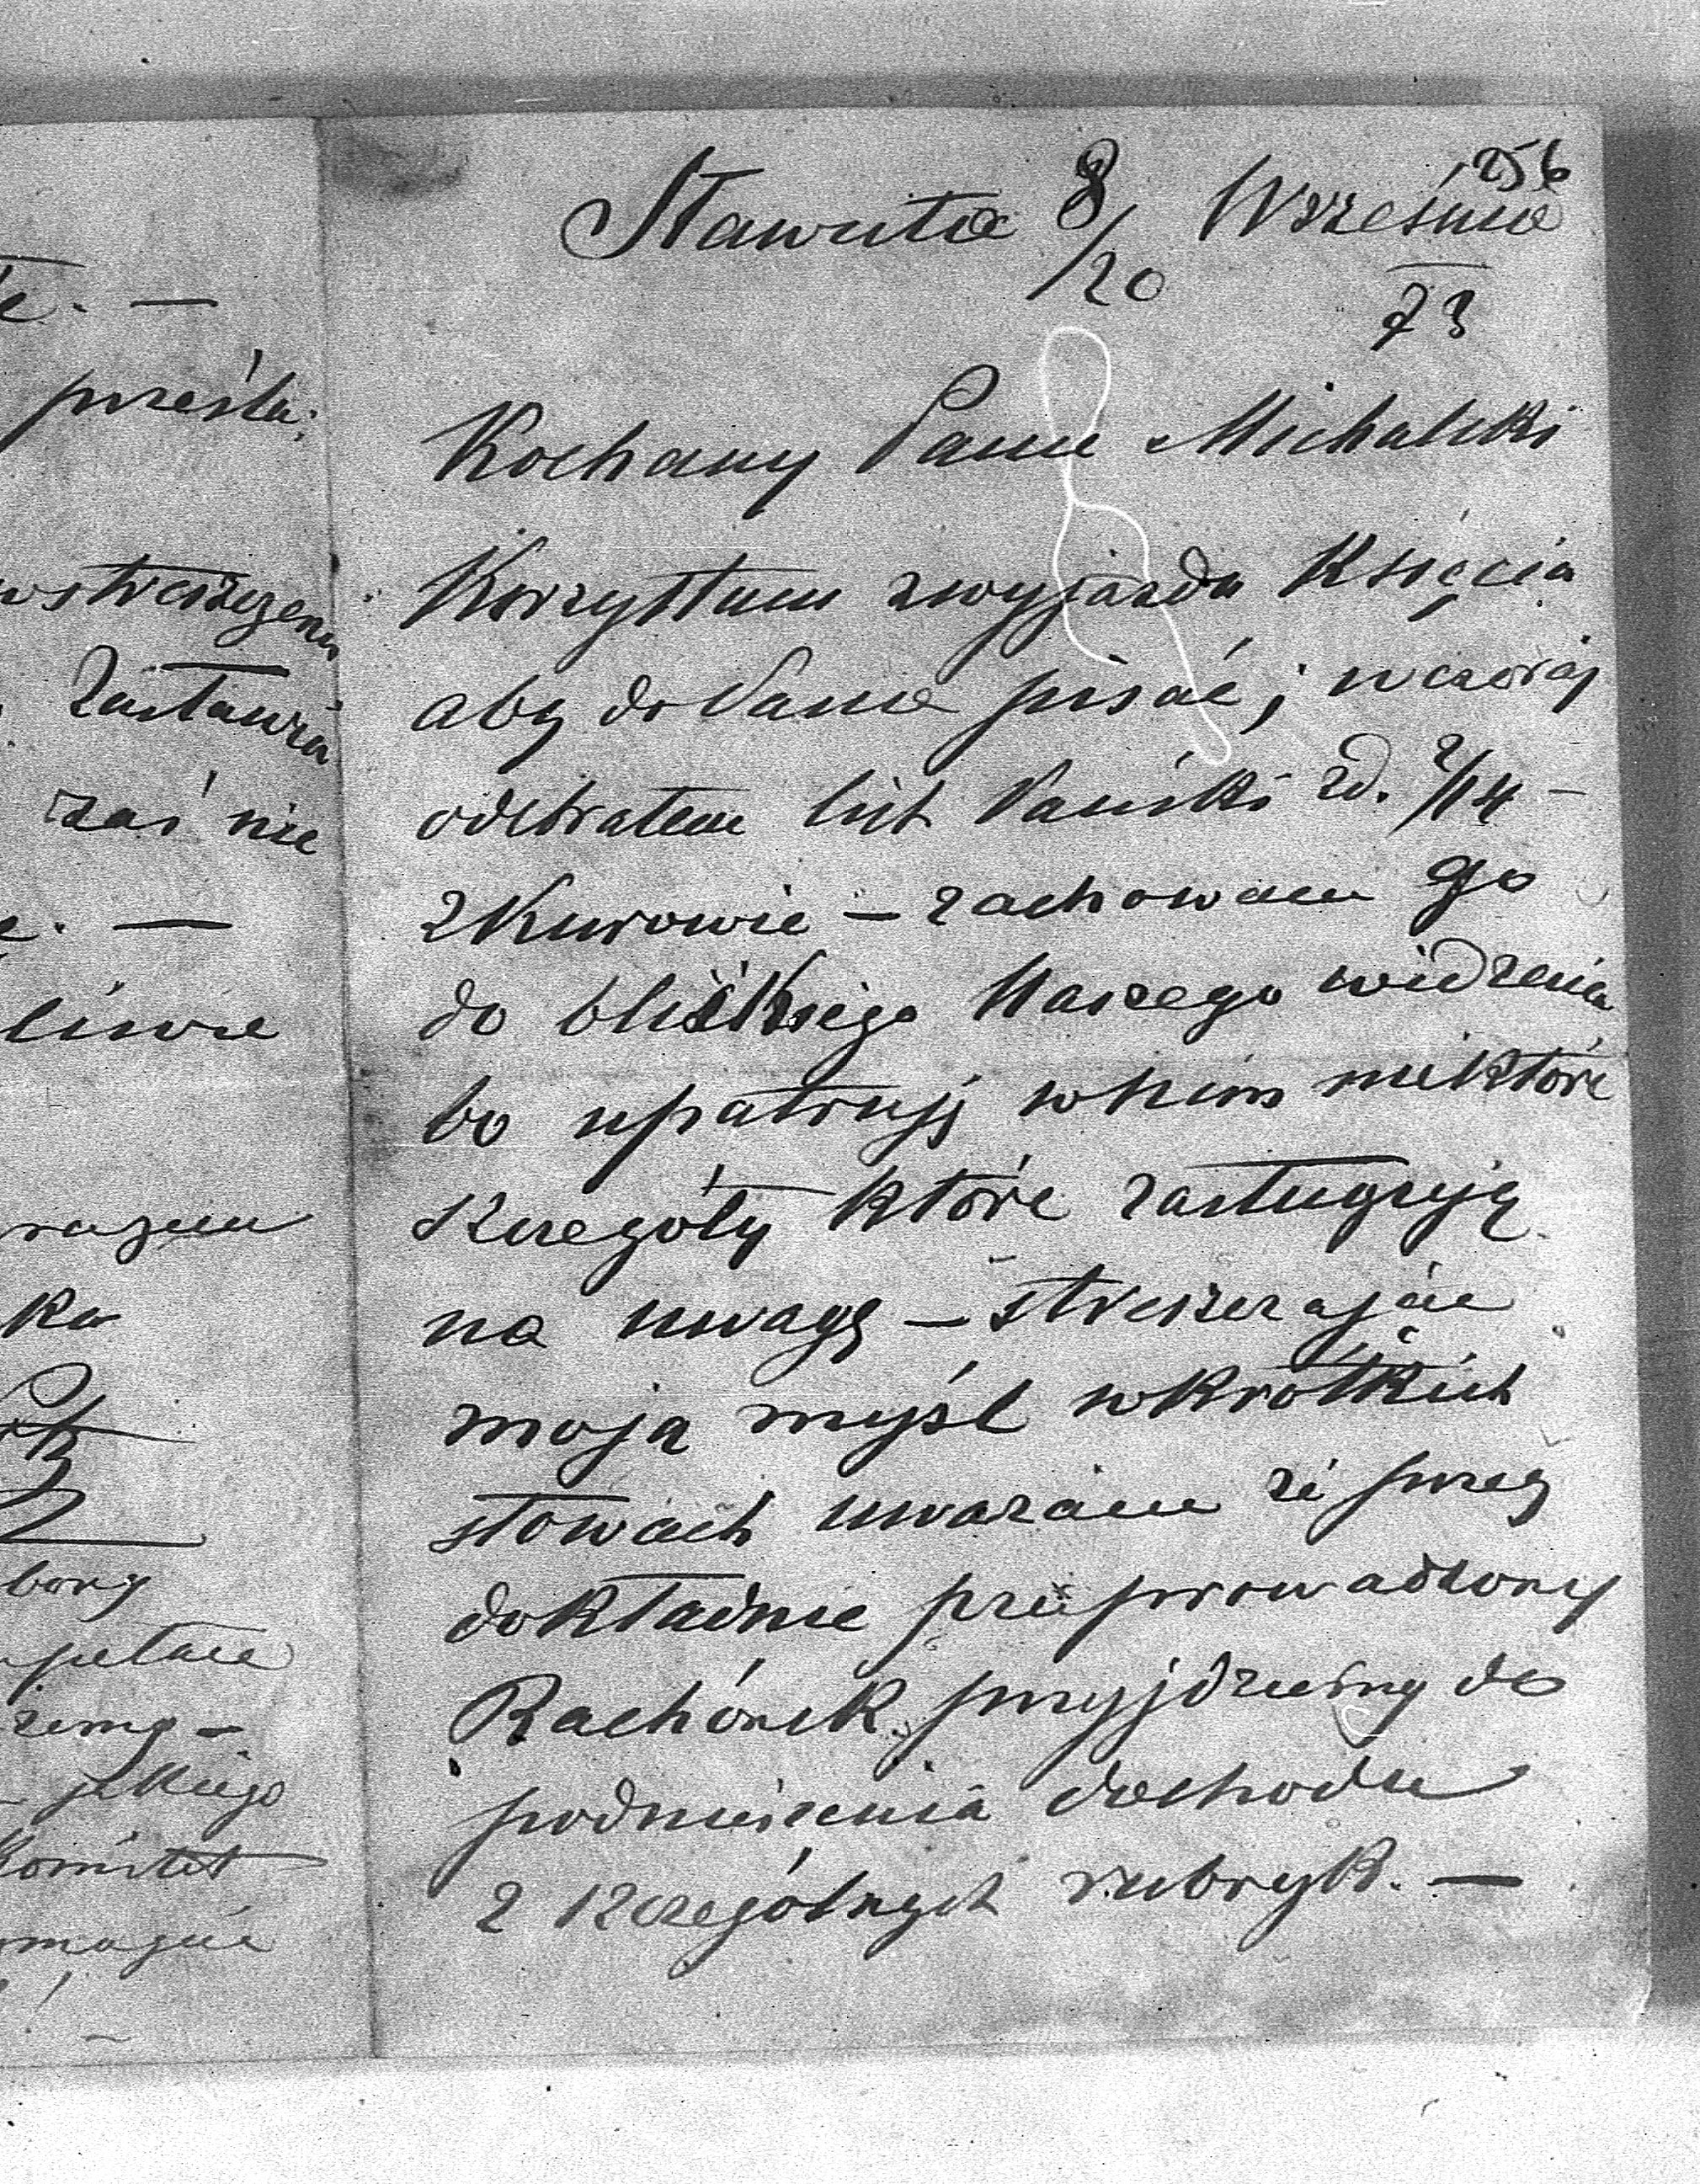 256
Sławuta 8/20 Września
73
Kochany Panie Michalski
Korzystam z wyjazdu Księcia
aby do Pana pisać, wczoraj
odebrałem list Pański zd. 2/14 –
z Kurowie – zachowam go
do bliskiego Naszego widzenia
bo upatruję w nim niektóre
szczegóły które zasługują
na uwagę – streszczając
moją myśl w krótkich
słowach uważam że przez
dokładnie przeprowadzony
Rachónek przyjdziemy do
podniesienia dochodu
z szczególnych rubryk. –
te. –
prześla;
wstrzeżen
Zastawia
zaś nie
e. –
liwie
razem
ka
zimą –
Komitet